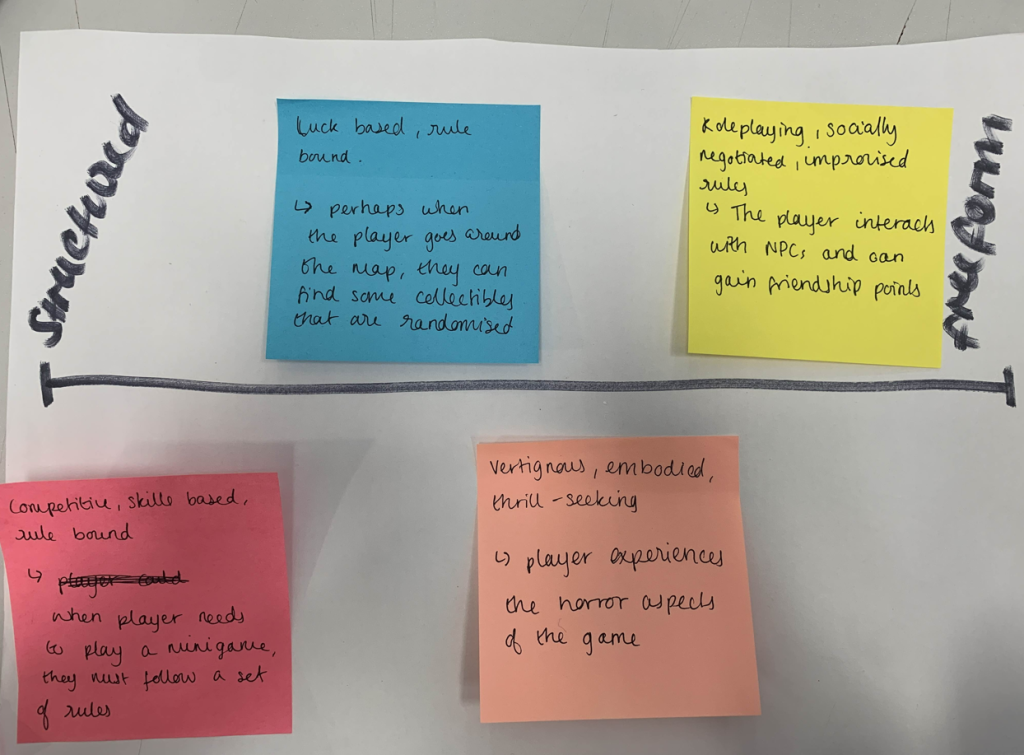 Structured
Luck based, rule
bound.
↳ perhaps when
the player goes around
the map, they can
find some collectibles
that are randomised
Roleplaying, socially
negotiated, improvised
rules
↳ The player interacts
with NPCs and can
gain friendship points
freeform
Competitive, skills based,
rule bound
↳ player could
when player needs
to play a minigame,
they must follow a set
of rules
Vertignous, embodied,
thrill-seeking
↳ player experiences
the horror aspects
of the game